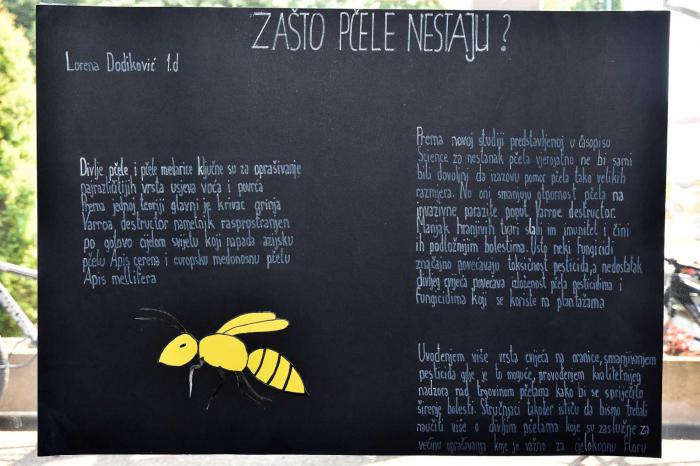 ZAŠTO PČELE NESTAJU?
Lorena Dodiković 1.d
Divlje pčele i pčele medarice ključne su za oprašivanje
najrazličitijih vrsta usjeva voća i povrća
Prema jednoj teoriji glavni je krivac grinja
Varroa destructor nametnik rasprostranjen
po gotovo cijelom svijetu koji napada azijsku
pčelu Apis cerena i europsku medonosnu pčelu
Apis mellifera
Prema novoj studiji predstavljenoj u časopisu
Science za nestanak pčela vjerojatno ne bi sami
bili dovoljni da izazovu pomor pčela tako velikih
razmjera. No oni smanjuju otpornost pčela na
invazivne parazite poput Varroe destructor.
Manjak hranjivih tvari slabi im imunitet i čini
ih podložnijim bolestima. Usto neki fungicidi
značajno povećavaju toksičnost pesticida, a nedostatak
divljeg cvijeća povećava izloženost pčela pesticidima i
fungicidima koji se koriste na plantažama
Uvođenjem više vrsta cvijeća na oranice, smanjivanjem
pesticida gdje je to moguće, provođenjem kvalitetnijeg
nadzora nad trgovinom pčelama kako bi se spriječilo
širenje bolesti. Stručnjaci također ističu da bismo trebali
naučiti više o divljim pčelama koje su zaslužne za
većinu oprašivanja koje je važno za cjelokupnu floru